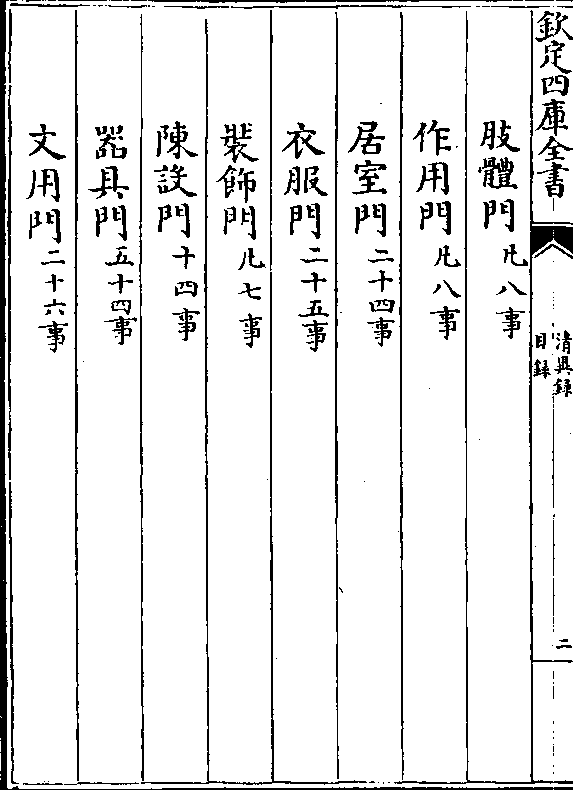 欽定四庫全書
清異録
目録
二
肢體門凡八事
作用門凡八事
居室門二十四事
衣服門二十五事
裝飾門凡七事
陳設門十四事
器具門五十四事
文用門二十六事